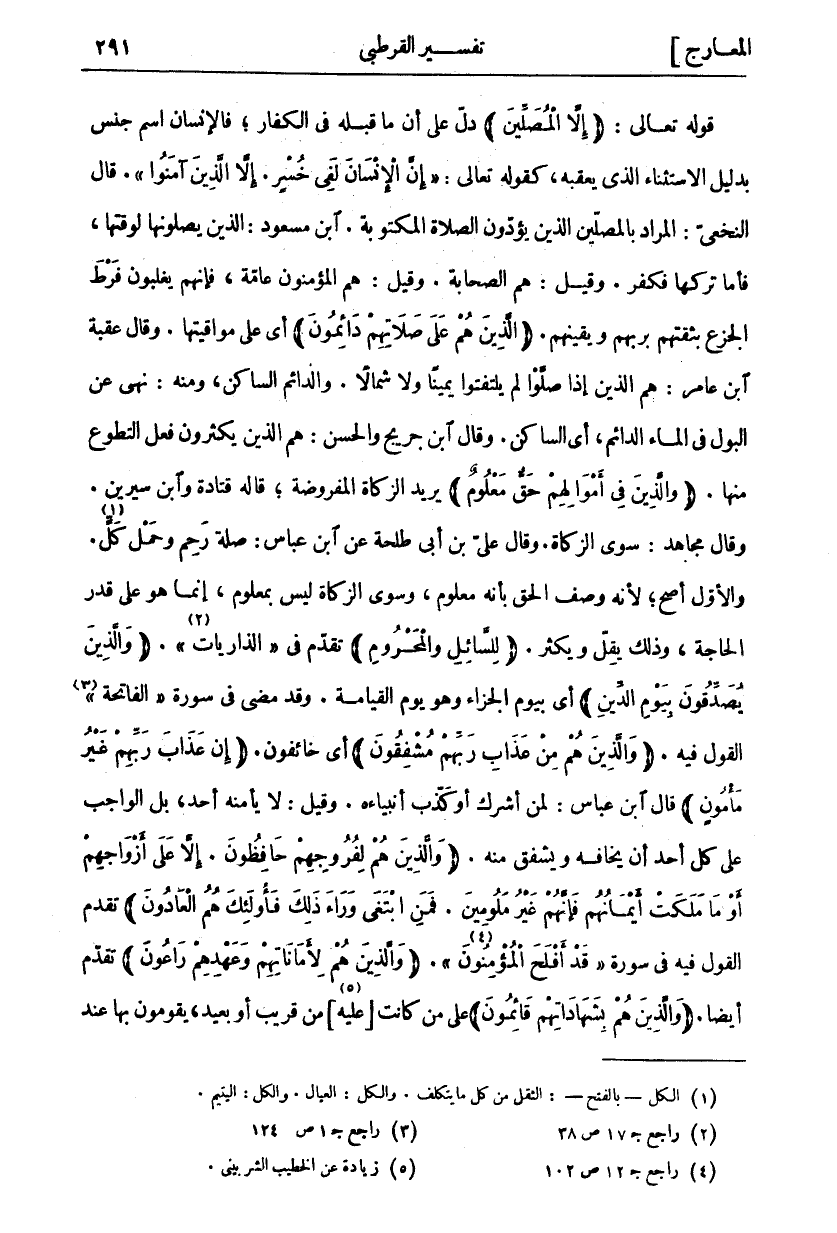 المعارج] تفسير القرطبى ٢٩١
قوله تعالى : ﴿ إِلَّا الْمُصَلِّينَ ﴾ دلّ على أن ما قبله فى الكفار ؛ فالإنسان اسم جنس
بدليل الاستثناء الذى يعقبه، كقوله تعالى : « إِنَّ الْإِنْسَانَ لَفِي خُسْرٍ . إِلَّا الَّذِينَ آمَنُوا » . قال
النخعىّ : المراد بالمصلّين الذين يؤدّون الصلاة المكتوبة . آبن مسعود : الذين يصلونها لوقتها ،
فأما تركها فكفر . وقيل : هم الصحابة . وقيل : هم المؤمنون عامّة ، فإنهم يغلبون فَرْطَ
الجزع بثقتهم بربهم ويقينهم . ﴿ الَّذِينَ هُمْ عَلَى صَلَاتِهِمْ دَائِمُونَ ﴾ أى على مواقيتها . وقال عقبة
آبن عامر : هم الذين إذا صلَّوْا لم يلتفتوا يمينًا ولا شمالًا . والدائم الساكن، ومنه : نهى عن
البول فى الماء الدائم، أى الساكن . وقال آبن جريج والحسن : هم الذين يكثرون فعل التطوع
منها . ﴿ وَالَّذِينَ فِي أَمْوَالِهِمْ حَقٌّ مَعْلُومٌ ﴾ يريد الزكاة المفروضة ؛ قاله قتادة وآبن سيرين .
وقال مجاهد : سوى الزكاة . وقال علىّ بن أبى طلحة عن آبن عباس : صلة رَحِم وحَمْل كَلّ(١) .
والأوّل أصح ؛ لأنه وصف الحق بأنه معلوم ، وسوى الزكاة ليس بمعلوم ، إنما هو على قدر
الحاجة ، وذلك يقلّ ويكثر . ﴿ لِلسَّائِلِ وَالْمَحْرُومِ ﴾ تقدّم فى « الذاريات(٢) » . ﴿ وَالَّذِينَ
يُصَدِّقُونَ بِيَوْمِ الدِّينِ ﴾ أى بيوم الجزاء وهو يوم القيامة . وقد مضى فى سورة « الفاتحة(٣) »
القول فيه . ﴿ وَالَّذِينَ هُمْ مِنْ عَذَابِ رَبِّهِمْ مُشْفِقُونَ ﴾ أى خائفون. ﴿ إِن عَذَابَ رَبِّهِمْ غَيْرُ
مَأْمُونٍ ﴾ قال آبن عباس : لمن أشرك أو كذّب أنبياءه . وقيل : لا يأمنه أحد، بل الواجب
على كل أحد أن يخافه ويشفق منه . ﴿ وَالَّذِينَ هُمْ لِفُرُوجِهِمْ حَافِظُونَ . إِلَّا عَلَى أَزْوَاجِهِمْ
أَوْ مَا مَلَكَتْ أَيْمَانُهُمْ فَإِنَّهُمْ غَيْرُ مَلُومِينَ . فَمَنِ ابْتَغَى وَرَاءَ ذَلِكَ فَأُولَئِكَ هُمُ الْعَادُونَ ﴾ تقدم
القول فيه فى سورة « قَدْ أَفْلَحَ الْمُؤْمِنُونَ(٤) » . ﴿ وَالَّذِينَ هُمْ لِأَمَانَاتِهِمْ وَعَهْدِهِمْ رَاعُونَ ﴾ تقدّم
أيضا . ﴿ وَالَّذِينَ هُمْ بِشَهَادَاتِهِمْ قَائِمُونَ ﴾ على من كانت [عليه](٥) من قريب أو بعيد، يقومون بها عند
(١) الكل — بالفتح — : الثقل من كل ما يتكلف . والكل : العيال . والكل : اليتيم .
(٢) راجع جـ ١٧ ص ٣٨ (٣) راجع جـ ١ ص ١٢٤
(٤) راجع جـ ١٢ ص ١٠٢ (٥) زيادة عن الخطيب الشربينى .